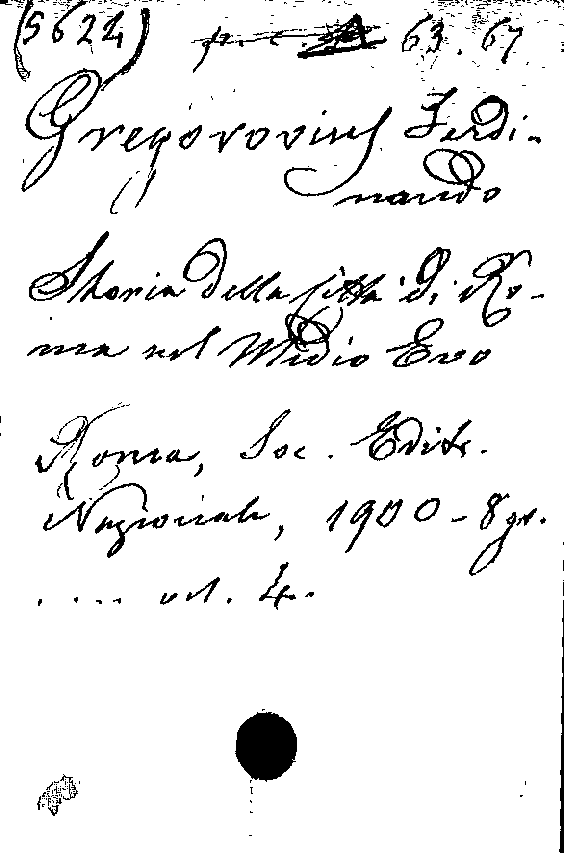 (5622) 63.67
Gregorovius Ferdi-
nando
Storia della Città di Ro-
ma nel Medio Evo
Roma, Soc. Editr.
Nazionale, 1900 - 8gr.
.... vol. 4.